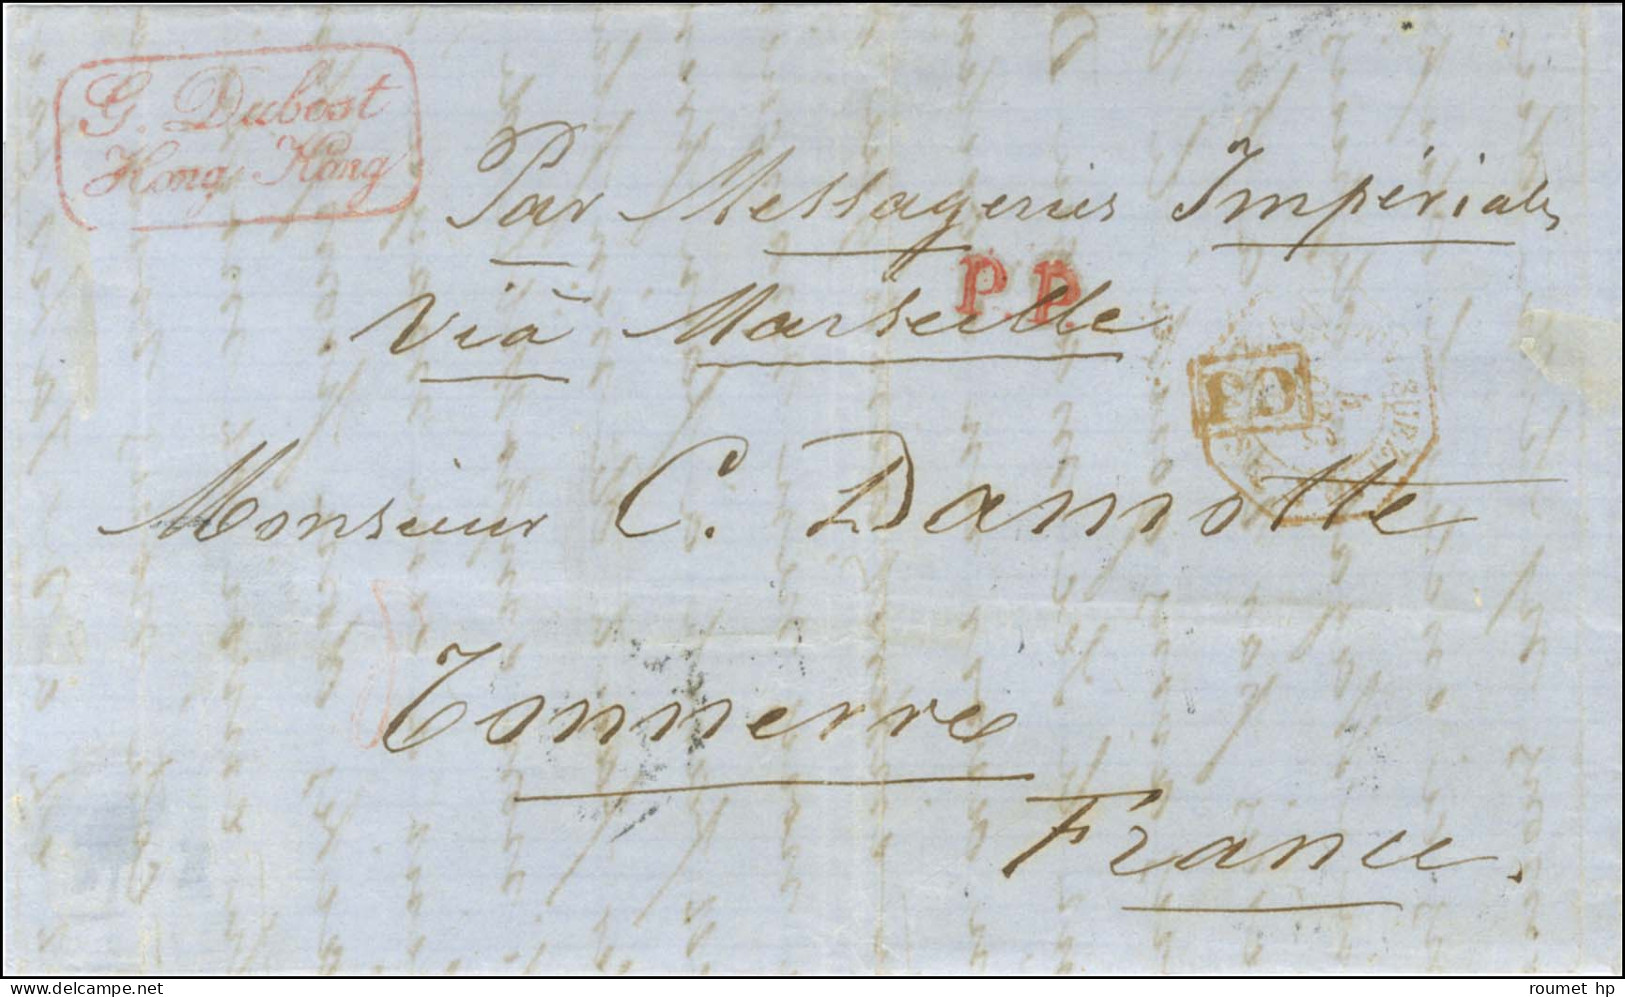 G. Dubost
Hong Kong
Par Messageries Impériales
P.P.
viâ Marseille
PD
Monsieur C. Damotte
Tonnerre
France.
roumet hp